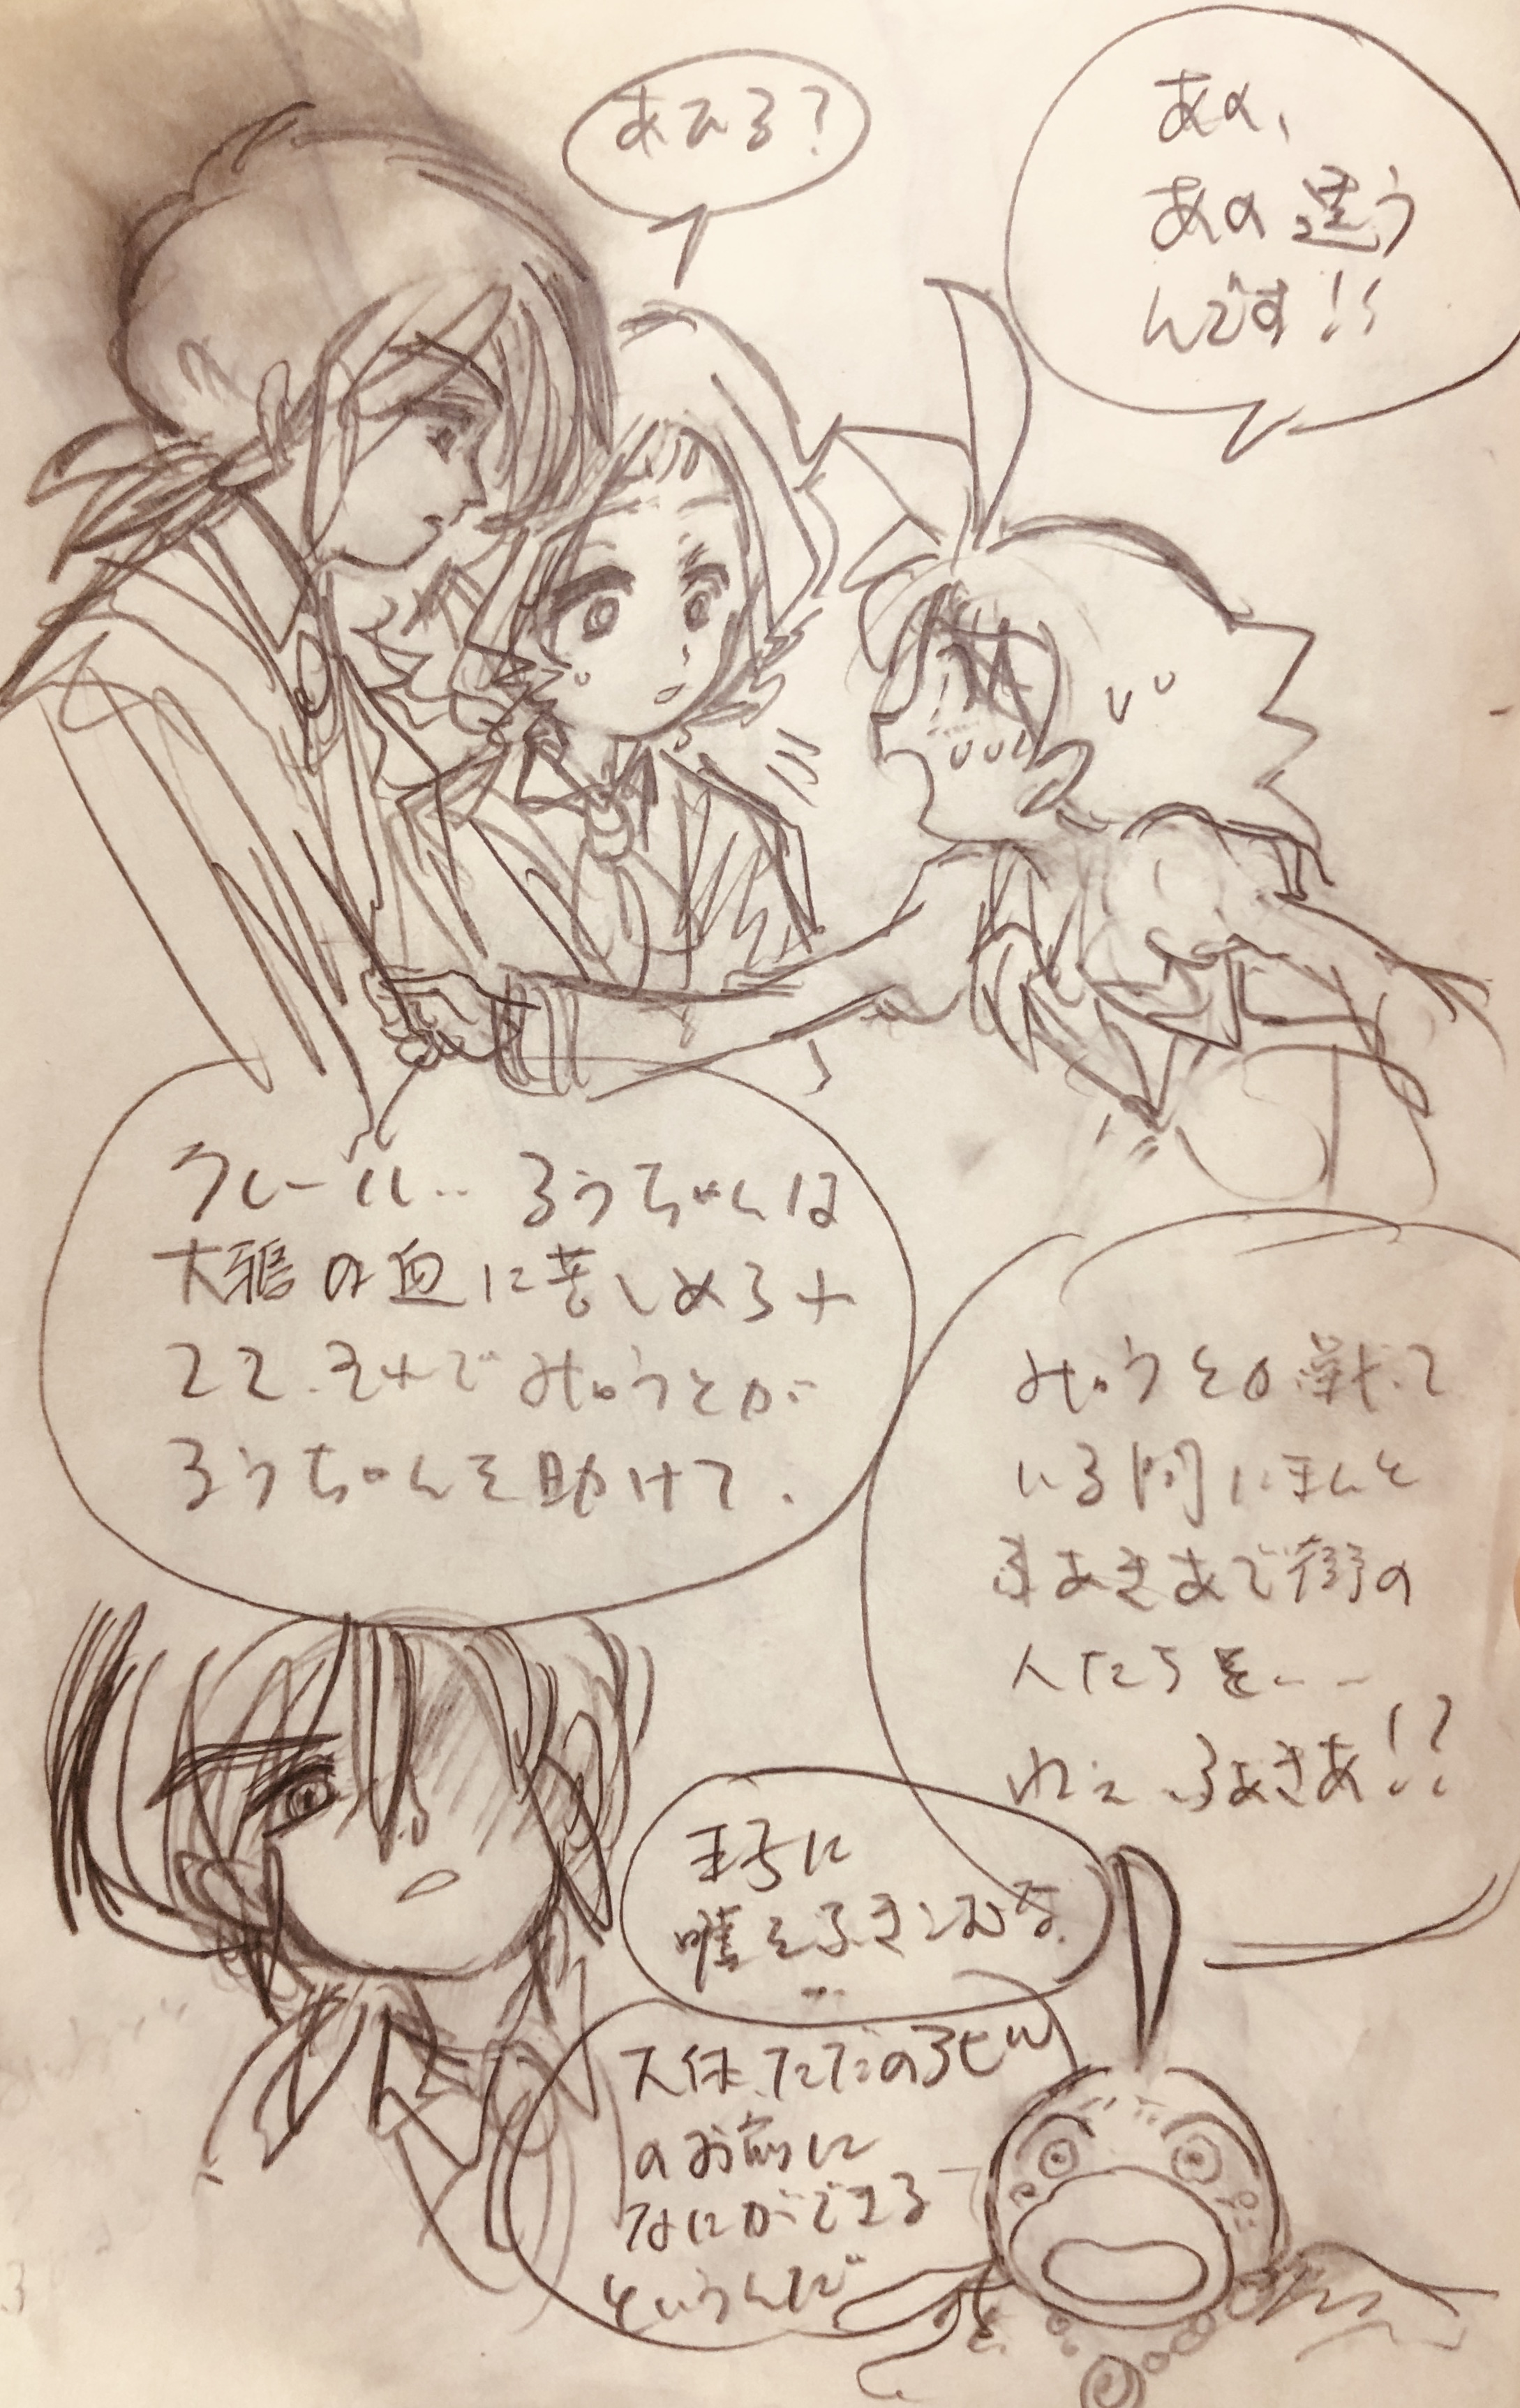 あの、
あの違う
んです!!
あひる?
クレール‥るうちゃんは
大鴉の血に苦しめられ
てて、それでみゅうとが
るうちゃんを助けて、
みゅうとの戦って
いる間にほんと
ふぁきあで街の
人たちを--
ねえ ふぁきあ!?
王子に
嘘をふきこむな
…
大体、ただのあひる
のお前に
なにができる
というんだ